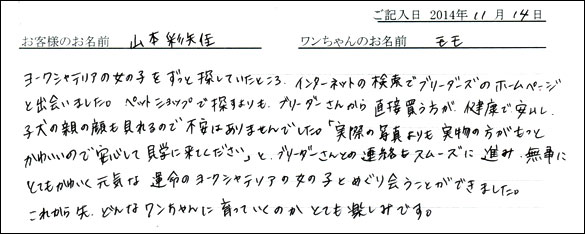 ご記入日 2014年 11月 14日
お客様のお名前 山本彩矢佳 ワンちゃんのお名前 モモ
ヨークシャテリアの女の子をずっと探していたところ、インターネットの検索でブリーダーズのホームページ
と出会いました。ペットショップで探すよりも、ブリーダーさんから直接買う方が、健康で安いし、
子犬の親の顔も見れるので不安はありませんでした。「実際の写真よりも実物の方がもっと
かわいいので安心して見学に来てください」と、ブリーダーさんとの連絡もスムーズに進み、無事に
とてもかわいく元気な運命のヨークシャテリアの女の子とめぐり会うことができました。
これから先、どんなワンちゃんに育っていくのかとても楽しみです。